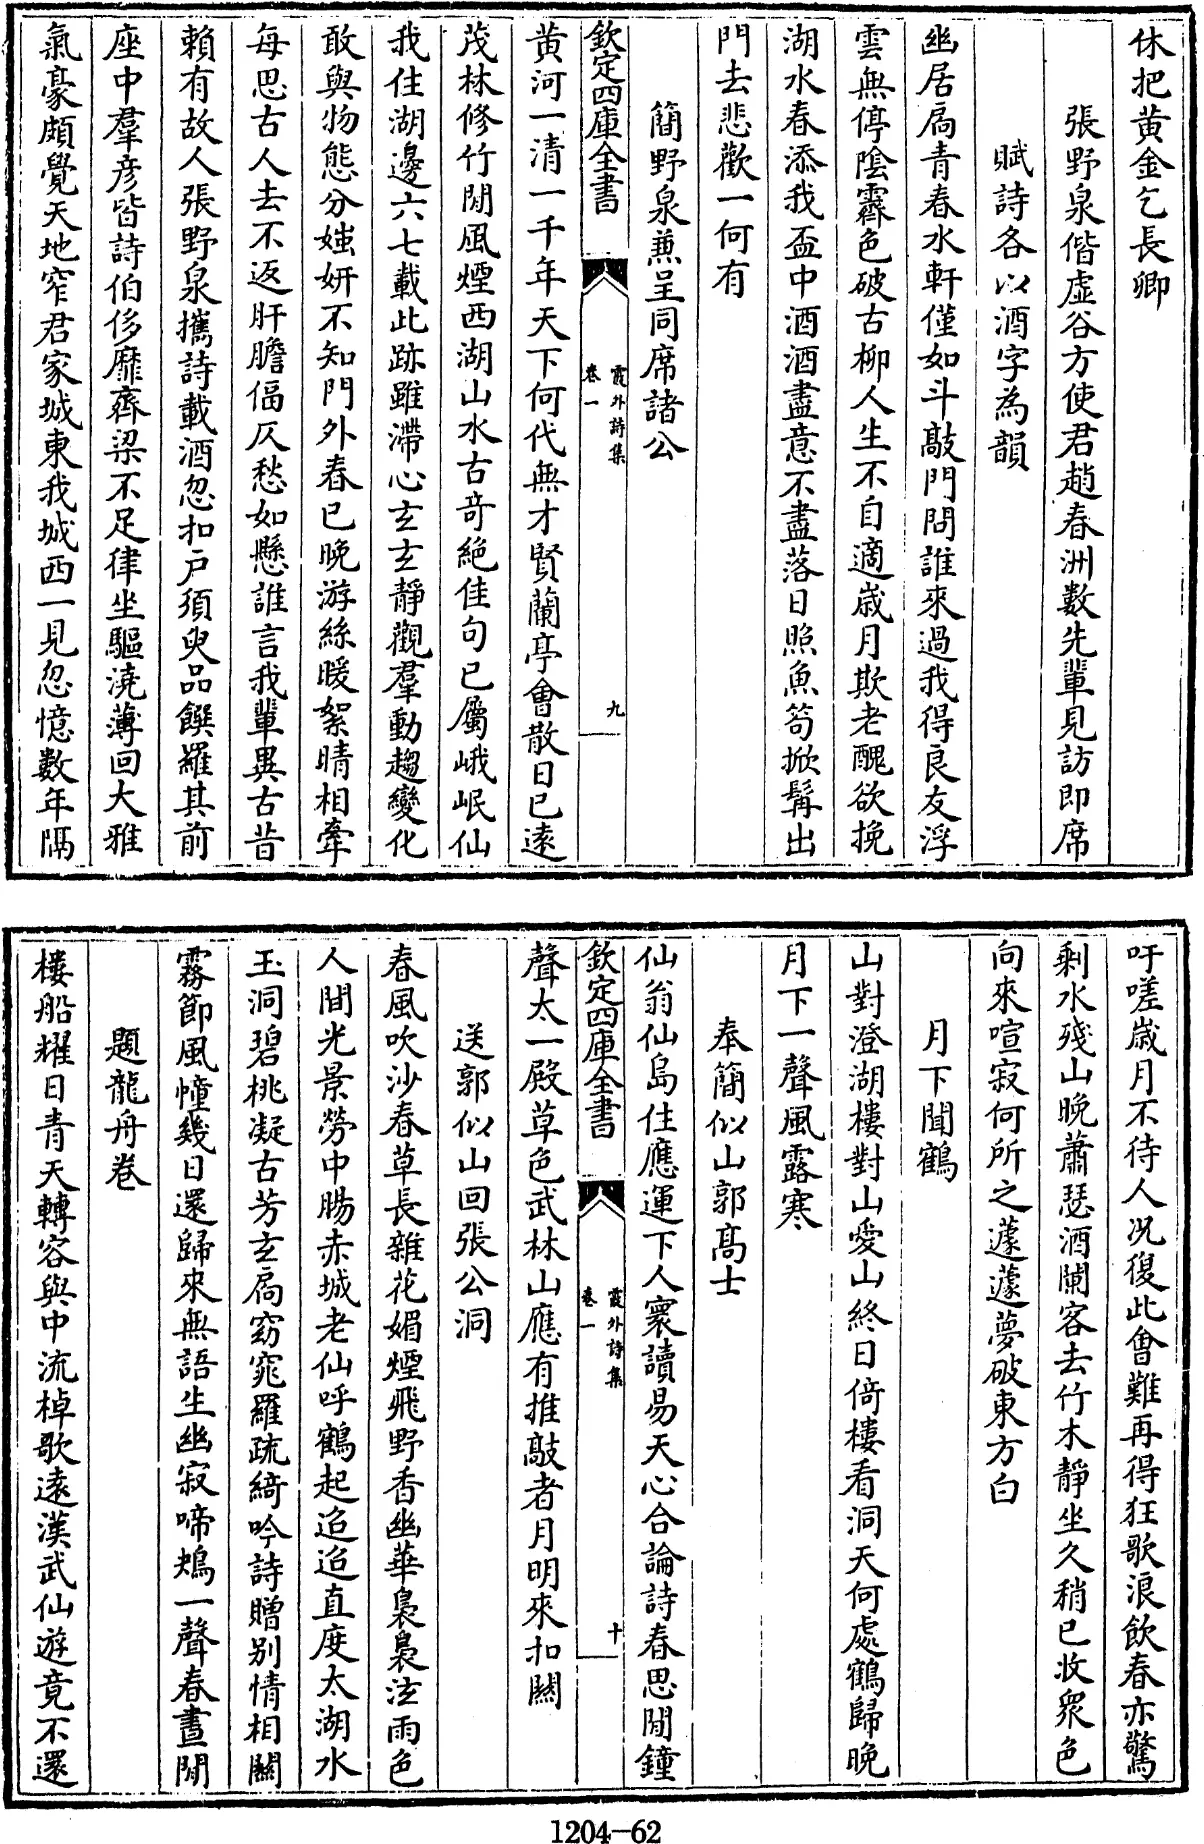 休把黄金乞長卿
張野泉偕虚谷方使君趙春洲數先輩見訪即席
賦詩各以酒字為韻
幽居扃青春水軒僅如斗敲門問誰來過我得良友浮
雲無停陰霽色破古柳人生不自適歲月欺老醜欲挽
湖水春添我盃中酒酒盡意不盡落日照魚笱掀髯出
門去悲歡一何有
簡野泉兼呈同席諸公
欽定四庫全書
霞外詩集
卷一
九
黄河一清一千年天下何代無才賢蘭亭會散日已遠
茂林修竹閒風煙西湖山水古奇絶佳句已屬峨岷仙
我住湖邊六七載此跡雖滯心玄玄靜觀羣動趨變化
敢與物態分媸妍不知門外春已晚游絲暖絮晴相牽
每思古人去不返肝膽偪仄愁如懸誰言我輩異古昔
賴有故人張野泉攜詩載酒忽扣户須臾品饌羅其前
座中羣彦皆詩伯侈靡齊梁不足律坐驅澆薄回大雅
氣豪頗覺天地窄君家城東我城西一見忽憶數年隔
吁嗟歲月不待人况復此會難再得狂歌浪飲春亦驚
剩水殘山晚蕭瑟酒闌客去竹木靜坐久稍已收衆色
向來喧寂何所之蘧蘧夢破東方白
月下聞鶴
山對澄湖樓對山愛山終日倚樓看洞天何處鶴歸晚
月下一聲風露寒
奉簡似山郭髙士
仙翁仙島住應運下人寰讀易天心合論詩春思閒鐘
欽定四庫全書
霞外詩集
卷一
十
聲太一殿草色武林山應有推敲者月明來扣關
送郭似山回張公洞
春風吹沙春草長雜花媚煙飛野香幽華裊裊泣雨色
人間光景勞中腸赤城老仙呼鶴起迢迢直度太湖水
玉洞碧桃凝古芳玄扃窈窕羅疏綺吟詩贈别情相關
霧節風幢幾日還歸來無語生幽寂啼鴂一聲春晝閒
題龍舟卷
樓船耀日青天轉容與中流棹歌遠漢武仙遊竟不還
1204-62